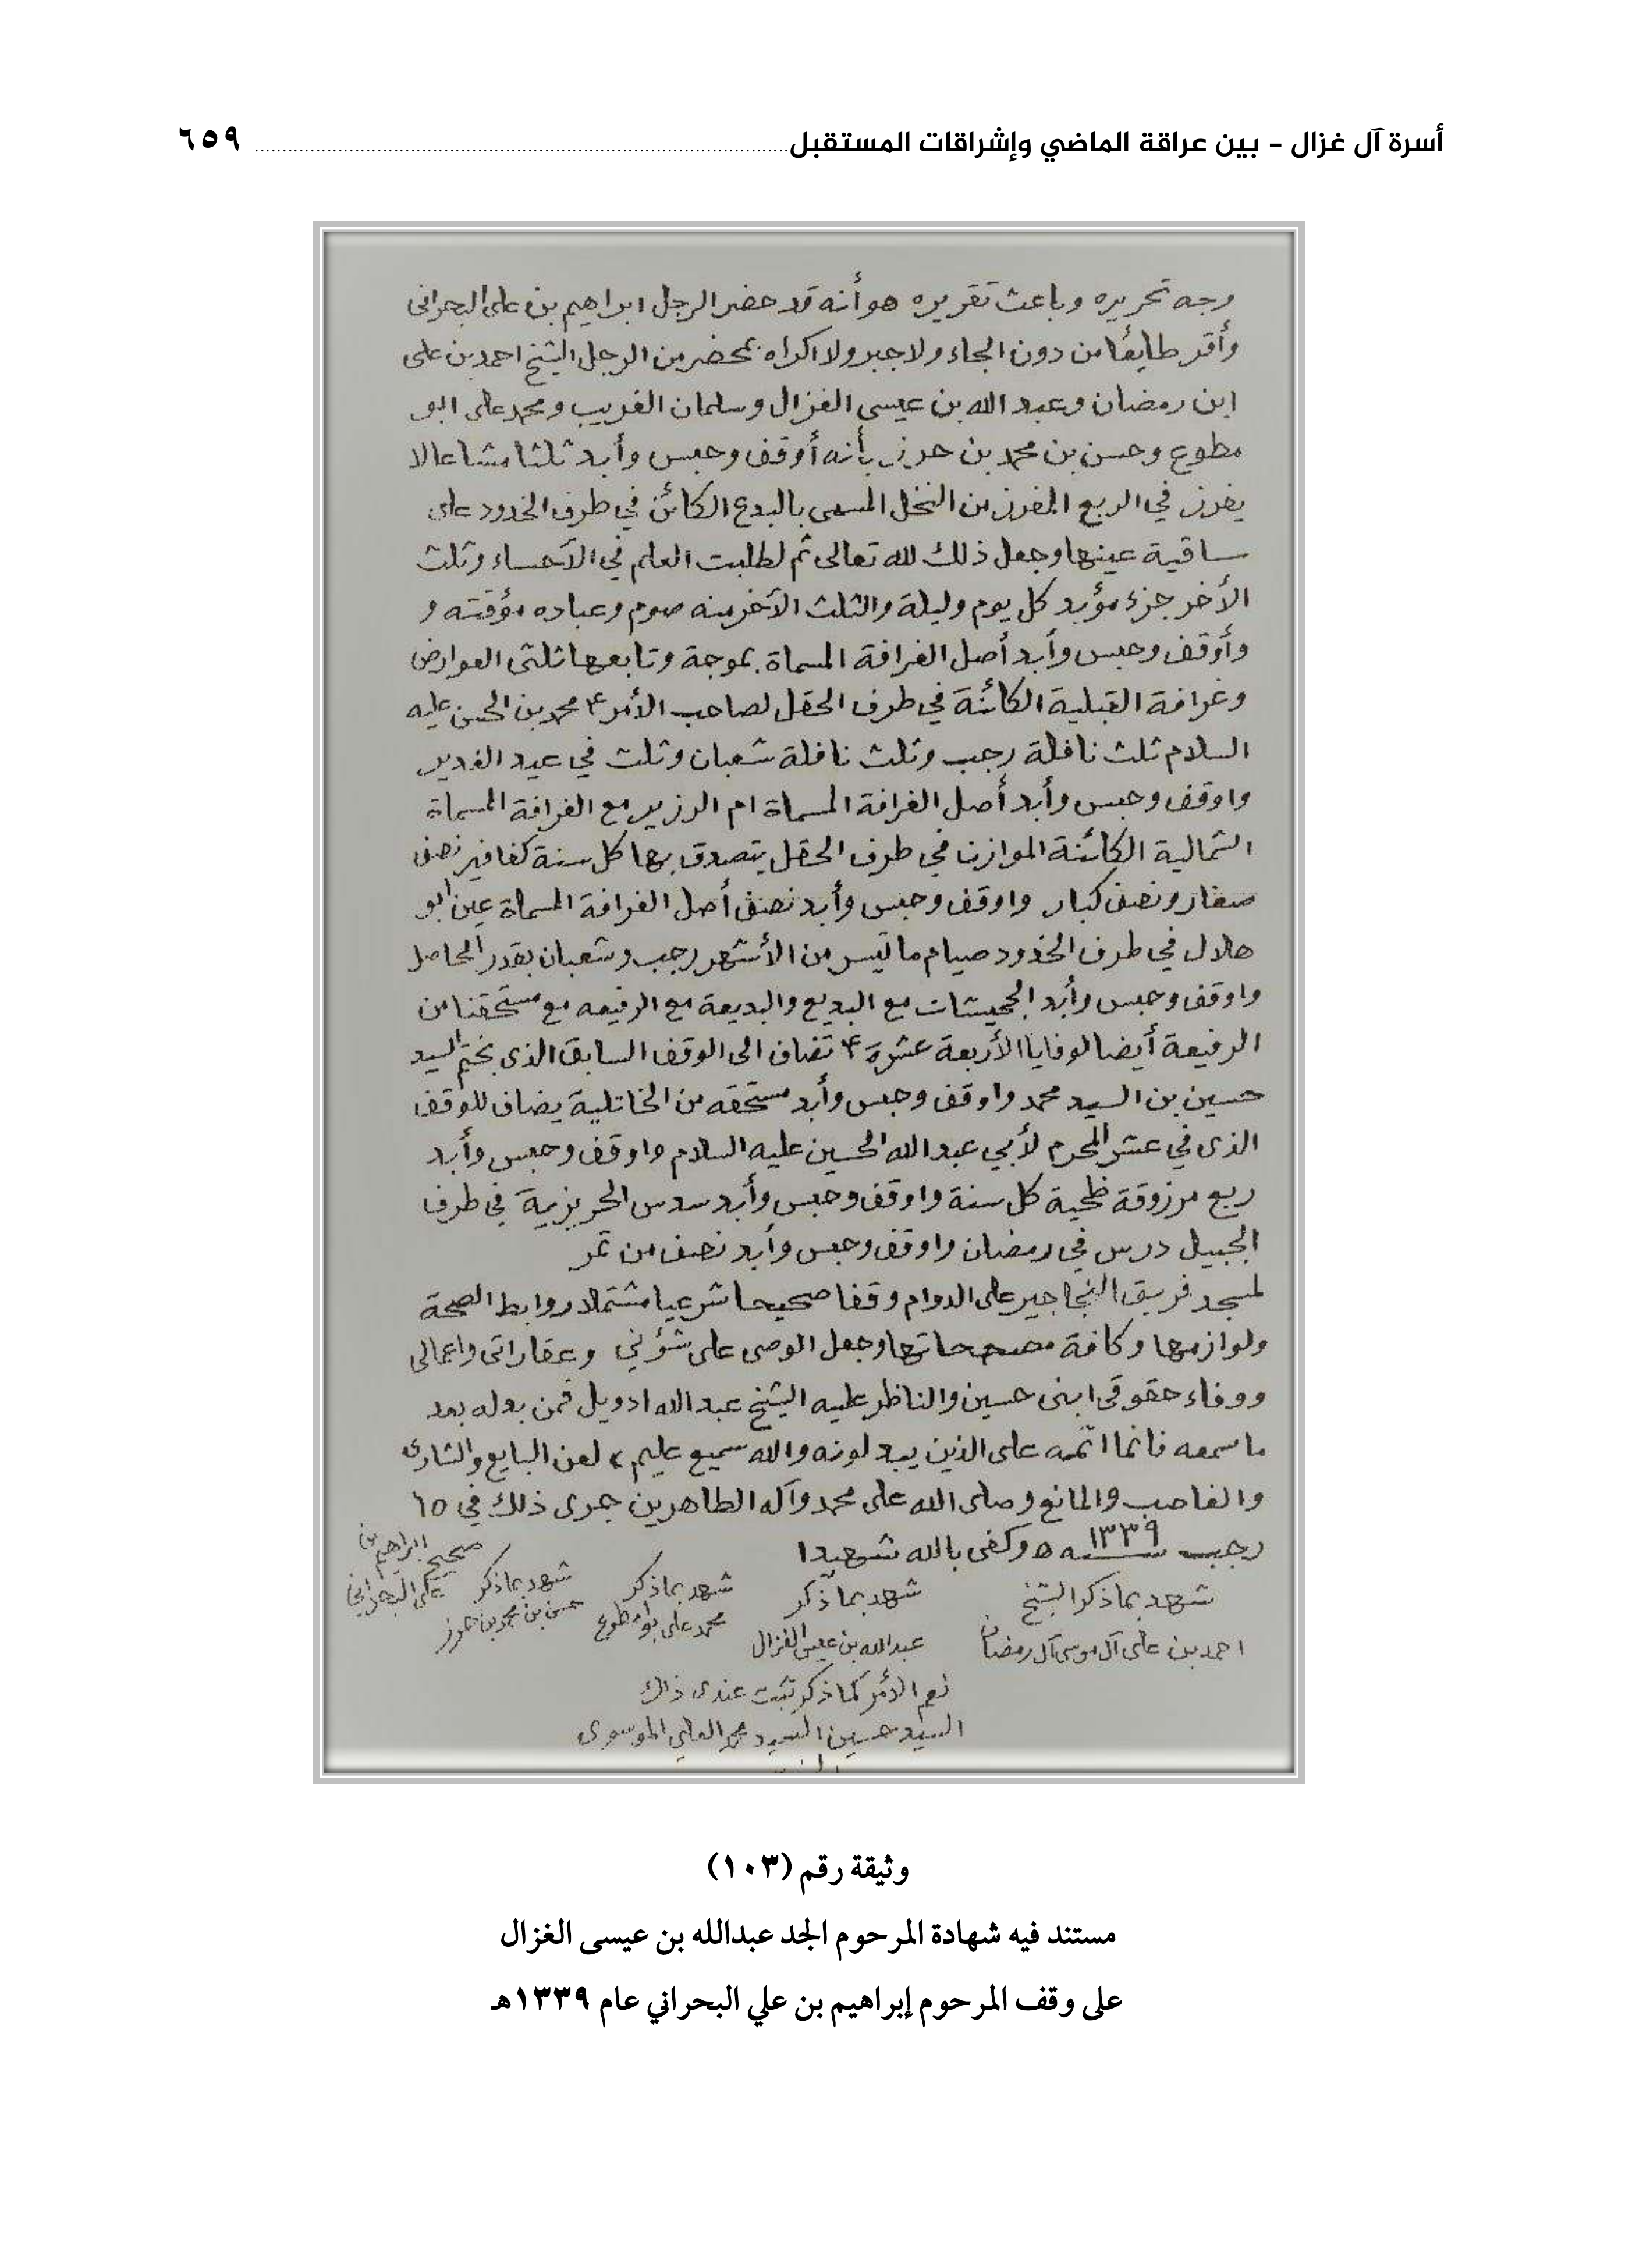 أسرة آل غزال – بين عراقة الماضي وإشراقات المستقبل ٦٥٩
وجه تحريره وباعث تقريره هو أنه قد حضر الرجل ابراهيم بن علي البحراني
وأقر طايعًا من دون الجاء ولا جبر ولا اكراه بمحضر من الرجل الشيخ احمد بن علي
ابن رمضان وعبد الله بن عيسى الغزال وسلمان الغريب ومحمد علي البو
مطوع وحسن بن محمد بن حرز بأنه أوقف وحبس وأبد ثلثا مشاعا لا
يفرز في الربع المفرز من النخل المسمى بالبدع الكائن في طرف الخدود على
ساقية عينها وجعل ذلك لله تعالى ثم لطلبت العلم في الأحساء وثلث
الأخر جزء مؤبد كل يوم وليلة والثلث الآخر منه صوم وعباده مؤقته و
وأوقف وحبس وأبد أصل الغرافة المسماة بموجة وتابعها ثلثى العوارض
وغرافة القبلية الكائنة في طرف الحقل لصاحب الأمر ع محمد بن الحسن عليه
السلام ثلث نافلة رجب وثلث نافلة شعبان وثلث في عيد الغدير
واوقف وحبس وأبد أصل الغرافة المسماة ام الرزير مع الغرافة المسماة
الشمالية الكائنة الموازن في طرف الحقل يتصدق بها كل سنة كفافير نصف
صغار ونصف كبار واوقف وحبس وأبد نصف أصل الغرافة المسماة عين ابو
هلال في طرف الخدود صيام ما تيسر من الأشهر رجب وشعبان بقدر الحاصل
واوقف وحبس وأبد الجحيشات مع البديع والبديعة مع الرفيعه مع مستحقنا من
الرفيعة أيضا لوفايا الأربعة عشرة ع تضاف الى الوقف السابق الذى بختم السيد
حسين بن السيد محمد واوقف وحبس وأبد مستحقه من الخاتلية يضاف للوقف
الذى في عشر المحرم لأبي عبد الله الحسين عليه السلام واوقف وحبس وأبد
ربع مرزوقة ظحية كل سنة واوقف وحبس وأبد سدس الحريزمية في طرف
الجبيل درس في رمضان واوقف وحبس وأبد نصف من تمر
لمسجد فريق النجاجير على الدوام وقفا صحيحا شرعيا مشتملا روابط الصحة
ولوازمها وكافة مصححاتها وجعل الوصى على شؤني وعقاراتى واعمالى
ووفاء حقوقى ابنى حسين والناظر عليه الشيخ عبد الله ادويل فمن بدله بعد
ما سمعه فانما اثمه على الذين يبدلونه والله سميع عليم، لعن البايع والشارى
والغاصب والمانع وصلى الله على محمد وآله الطاهرين جرى ذلك في ١٥
رجب سنة ١٣٣٩ ه وكفى بالله شهيدا
شهد بما ذكر الشيخ
احمد بن على آل موسى آل رمضان
شهد بما ذكر
عبد الله بن عيسى الغزال
شهد بما ذكر
محمد على بو مطوع
شهد بما ذكر
حسن بن محمد بن حرز
صحيح ابراهيم بن
على البحراني
نعم الأمر كما ذكر ثبت عندى ذلك
السيد حسين السيد محمد العلي الموسوى
وثيقة رقم (١٠٣)
مستند فيه شهادة المرحوم الجد عبدالله بن عيسى الغزال
على وقف المرحوم إبراهيم بن علي البحراني عام ١٣٣٩هـ